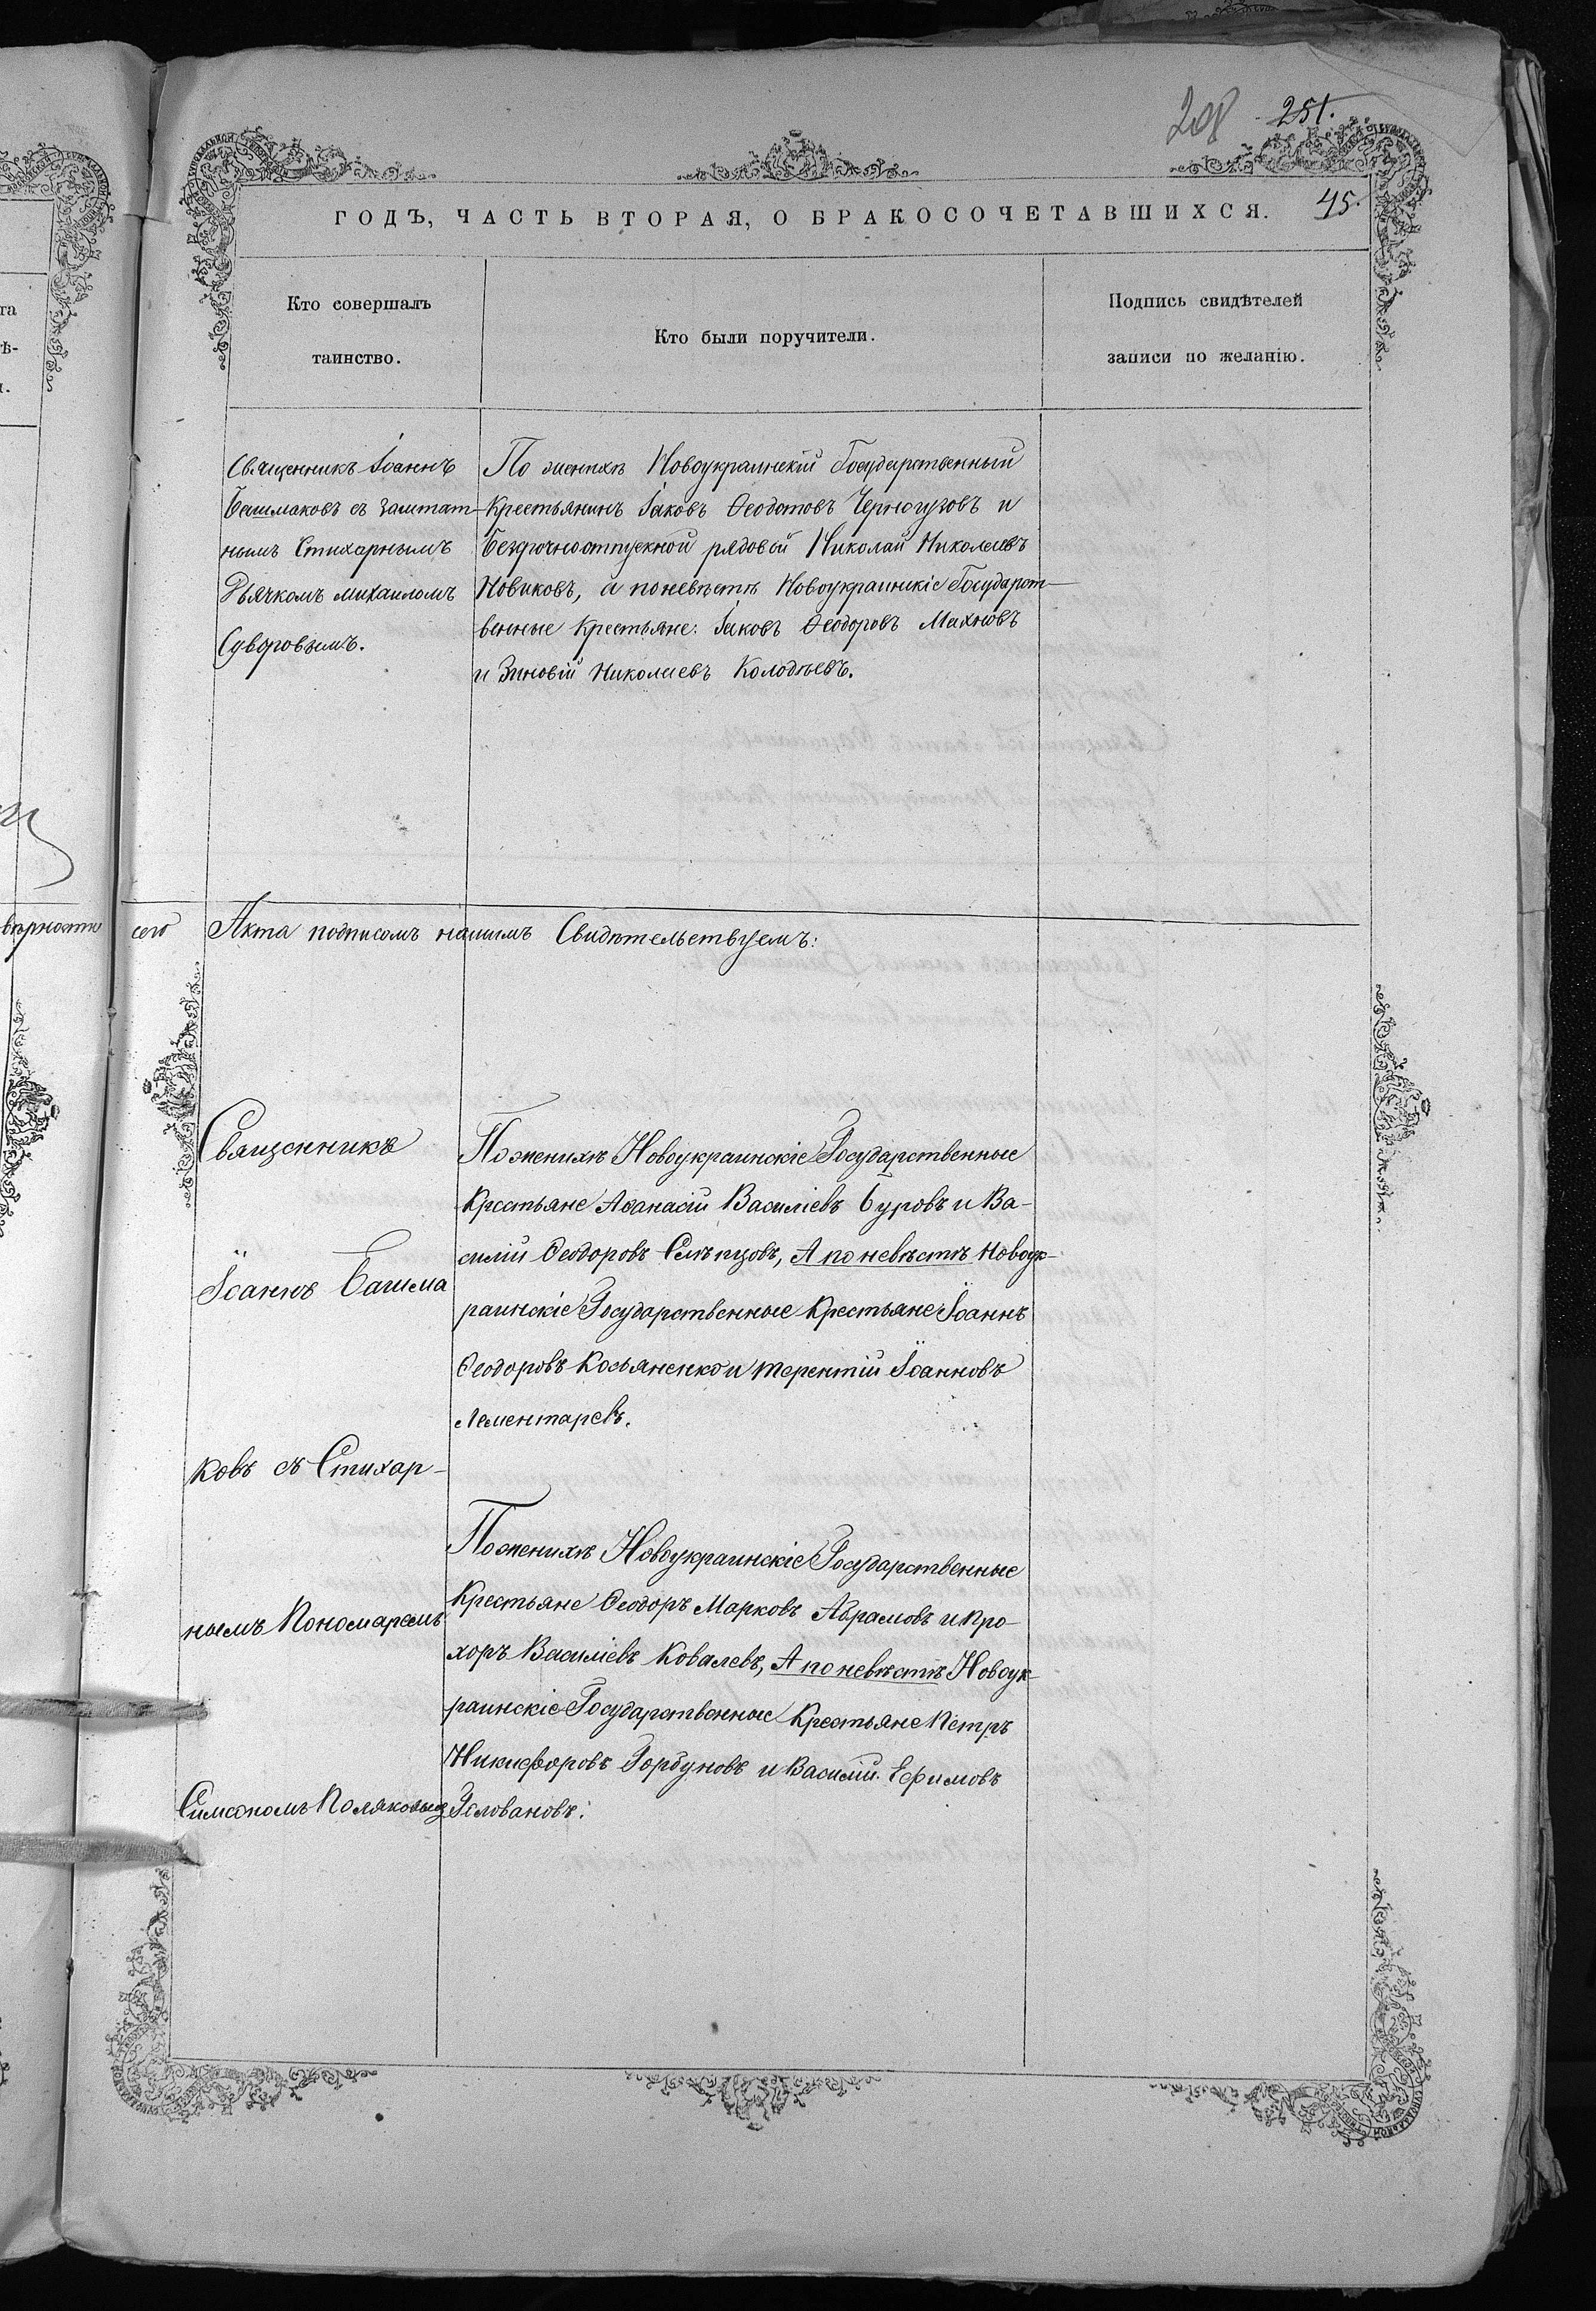 208 251.
ГОДЪ, ЧАСТЬ ВТОРАЯ, О БРАКОСОЧЕТАВШИХСЯ. 45.
Кто совершалъ
таинство.
Кто были поручители.
Подпись свидѣтелей
записи по желанію.
Священникъ Іоаннъ
Башмаковъ съ заштат-
нымъ Стихарнымъ
Дьячкомъ Михаиломъ
Суворовымъ.
По женихѣ Новоукраинскій Государственный
Крестьянинъ Іаковъ Ѳеодотовъ Черногузовъ и
безсрочноотпускной рядовой Николай Николаевъ
Новиковъ, а поневѣстѣ Новоукраинскіе Государст-
венные Крестьяне: Іаковъ Ѳеодоровъ Махновъ
и Зиновій Николаевъ Колодѣевъ.
вѣрности сего Акта подписомъ нашимъ Свидѣтельствуемъ:
Священникъ
Іоаннъ Башма
ковъ съ Стихар-
нымъ Пономаремъ
Симеономъ Поляковымъ
Поженихѣ Новоукраинскіе Государственные
Крестьяне Аѳанасій Василіевъ Буровъ и Ва-
силій Ѳеодоровъ Слѣпцовъ, А по невѣстѣ Новоук-
раинскіе Государственные Крестьяне Іоаннъ
Ѳеодоровъ Косьяненко и Терентій Іоанновъ
Лементаревъ.
Поженихѣ Новоукраинскіе Государственные
Крестьяне Ѳеодоръ Марковъ Абрамовъ и Про-
хоръ Василіевъ Ковалевъ, А по невѣстѣ Новоук-
раинскіе Государственные Крестьяне Петръ
Никифоровъ Горбуновъ и Василій Ефимовъ
Головановъ.